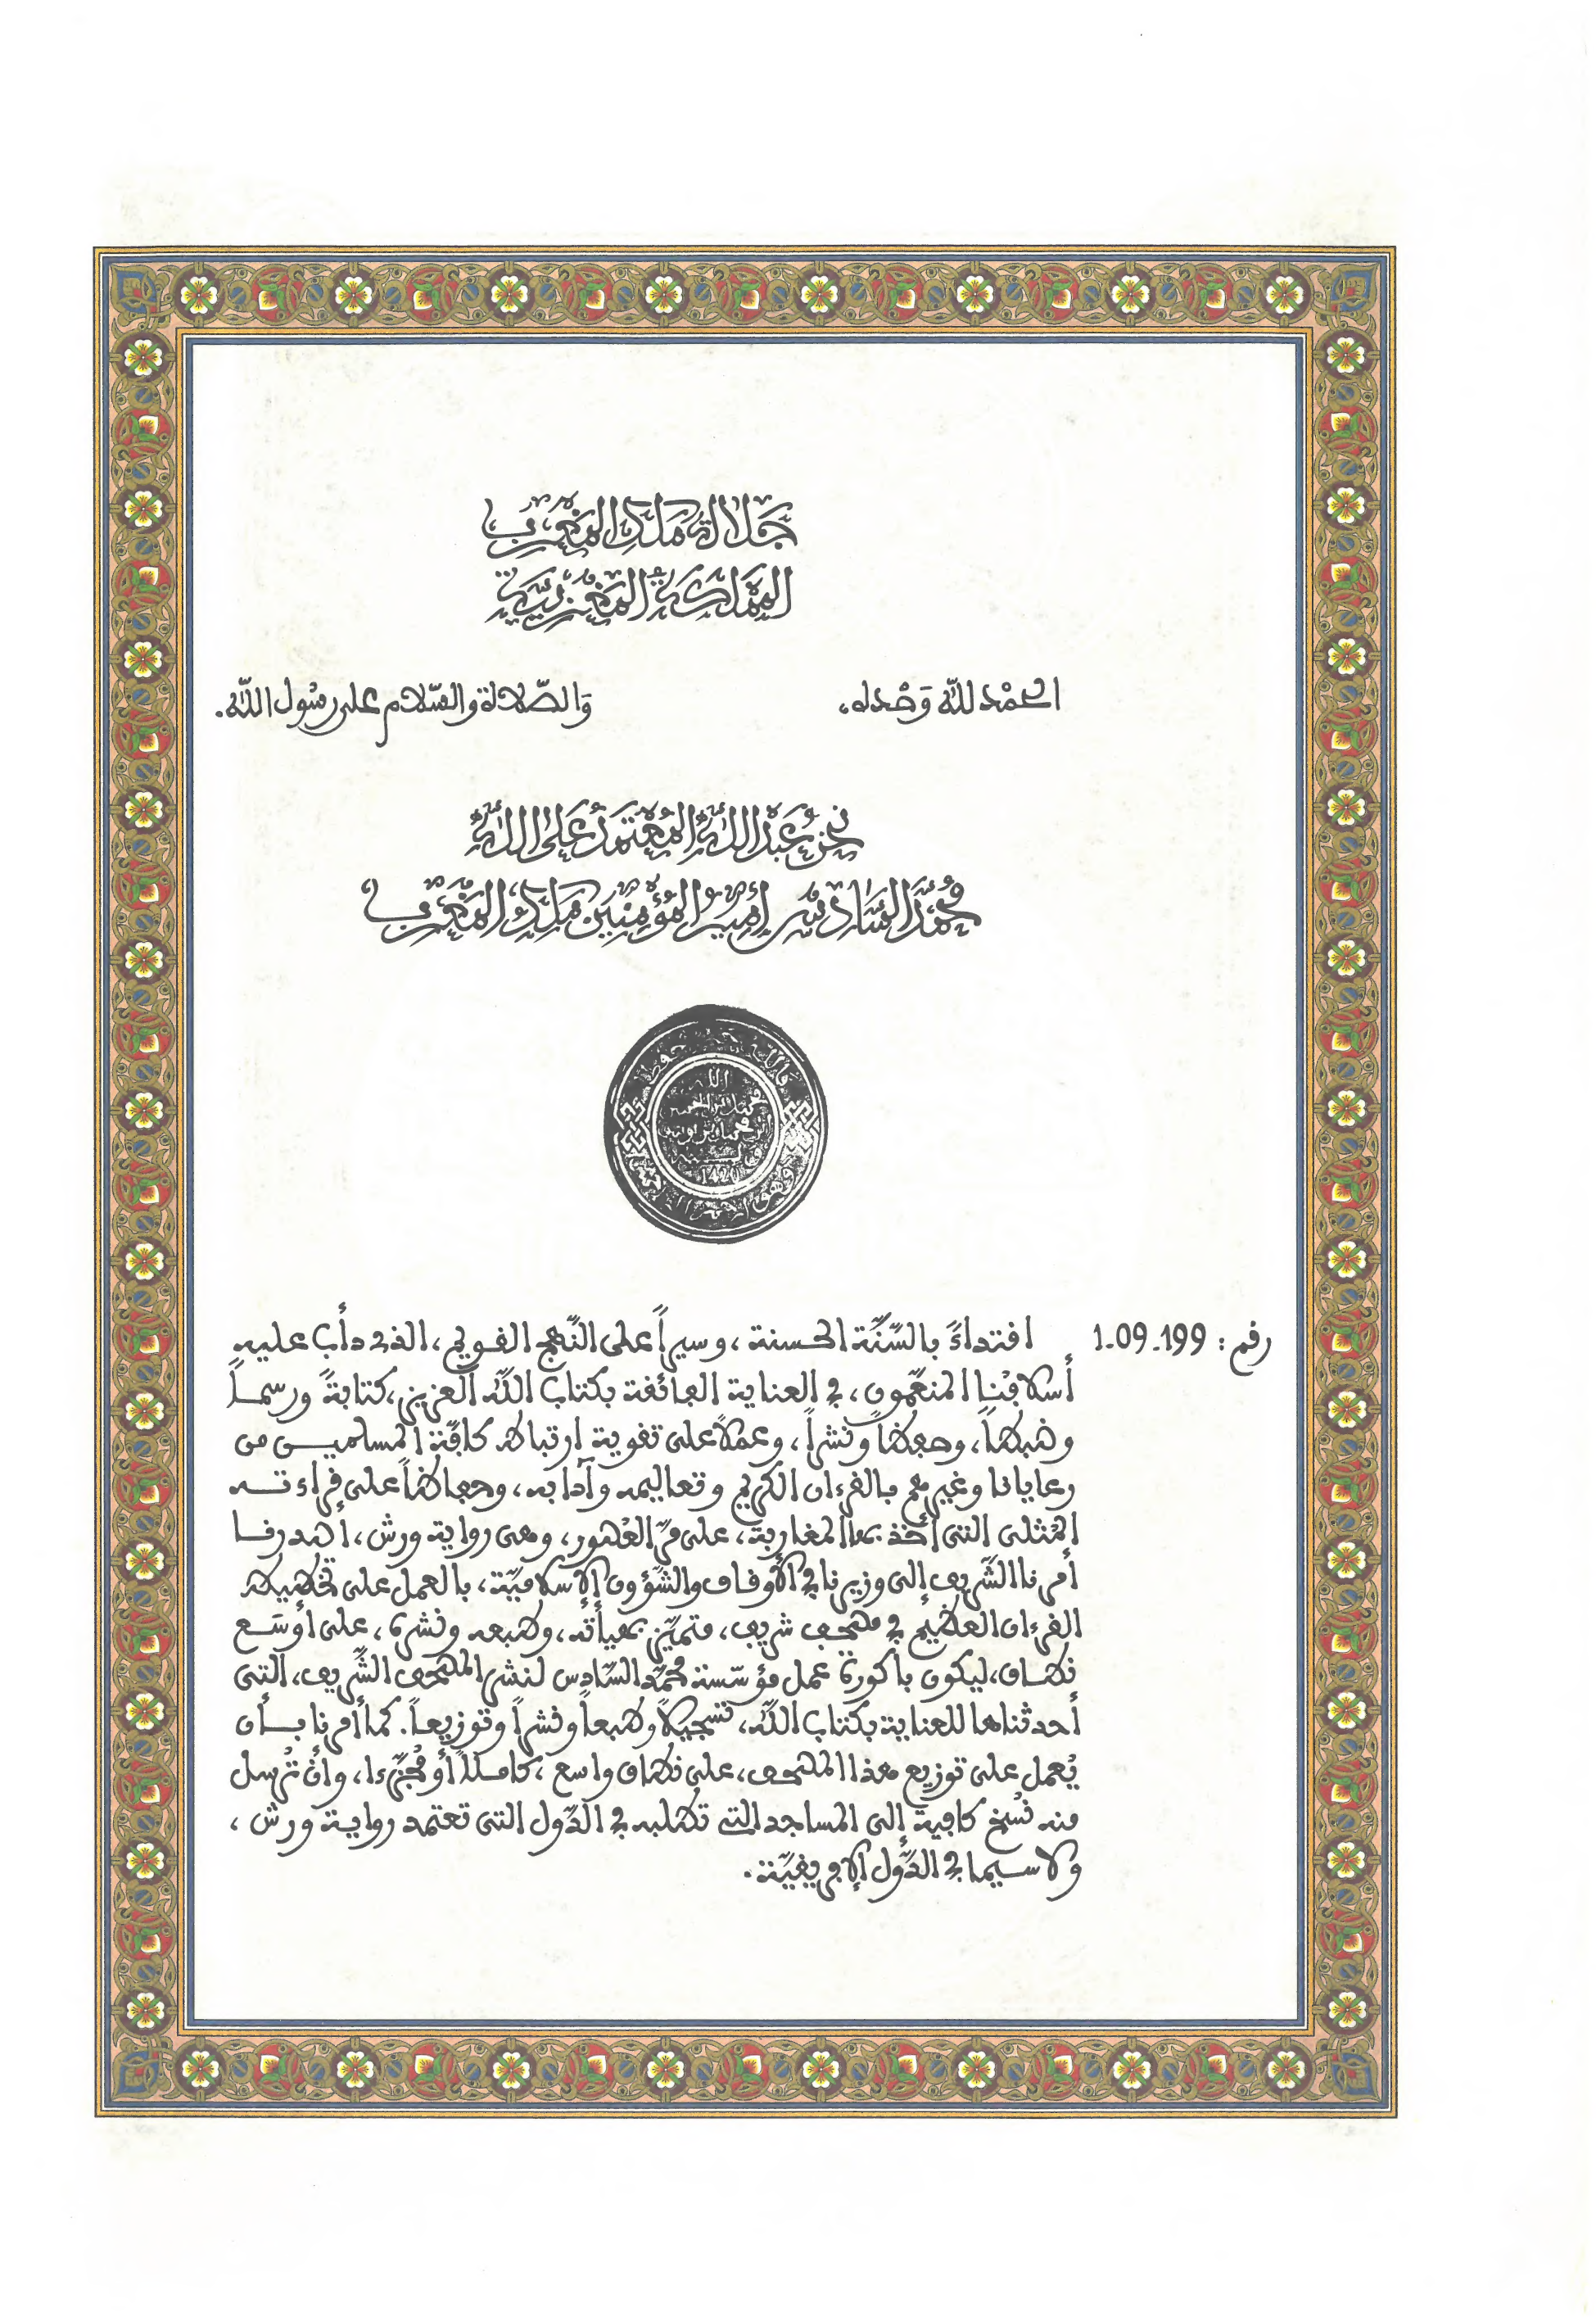 جَلَالَةُ مَلِكِ المَغْرِبِ
المَمْلَكَةُ المَغْرِبِيَّةُ
الحمْد لله وَحْده،
وَالصّلاة والسّلام على رسُول الله.
نحن عَبْدُ اللهِ المُعْتَمِدُ عَلَى اللهِ
مُحَمَّد السَّادِسُ أَمِيرُ المُؤْمِنِينَ مَلِكُ المَغْرِبِ
الله
محمد بن الحسن
1420
رقم : 1.09.199
اقتداءً بالسُّنَّة الحسنة ، وسيراً على النّهج القويم، الذي دأب عليه
أسلافُنا المنعّمون، في العناية الفائقة بكتاب الله العزيز، كتابةً ورسماً
وضبطاً، وحفظاً ونشراً، وعملاً على تقوية ارتباط كافّة المسلمين من
رعايانا وغيرهم بالقرءان الكريم وتعاليمه وآدابه، وحفاظاً على قراءته
المُثلى التي أخذ بها المغاربة، على مرّ العُصور، وهي رواية ورش، أصدرنا
أمرنا الشّريف إلى وزيرنا في الأوقاف والشّؤون الإسلاميّة، بالعمل على تخطيط
القرءان العظيم في مصحف شريف، متميّز بهيأته، وطبعه ونشره، على أوسَع
نطاق، ليكون باكورة عمل مؤسّسة محمّد السّادس لنشر المصحف الشّريف، التي
أحدثناها للعناية بكتاب الله، تسجيلاً وطبعاً ونشراً وتوزيعاً. كما أمرنا بأن
يُعمل على توزيع هذا المصحف، على نطاق واسع ، كاملاً أو مُجزّءا، وأن تُرسل
منه نُسخ كافية إلى المساجد التي تطلبه في الدّول التي تعتمد رواية ورش ،
ولا سيما في الدّول الإفريقيّة.